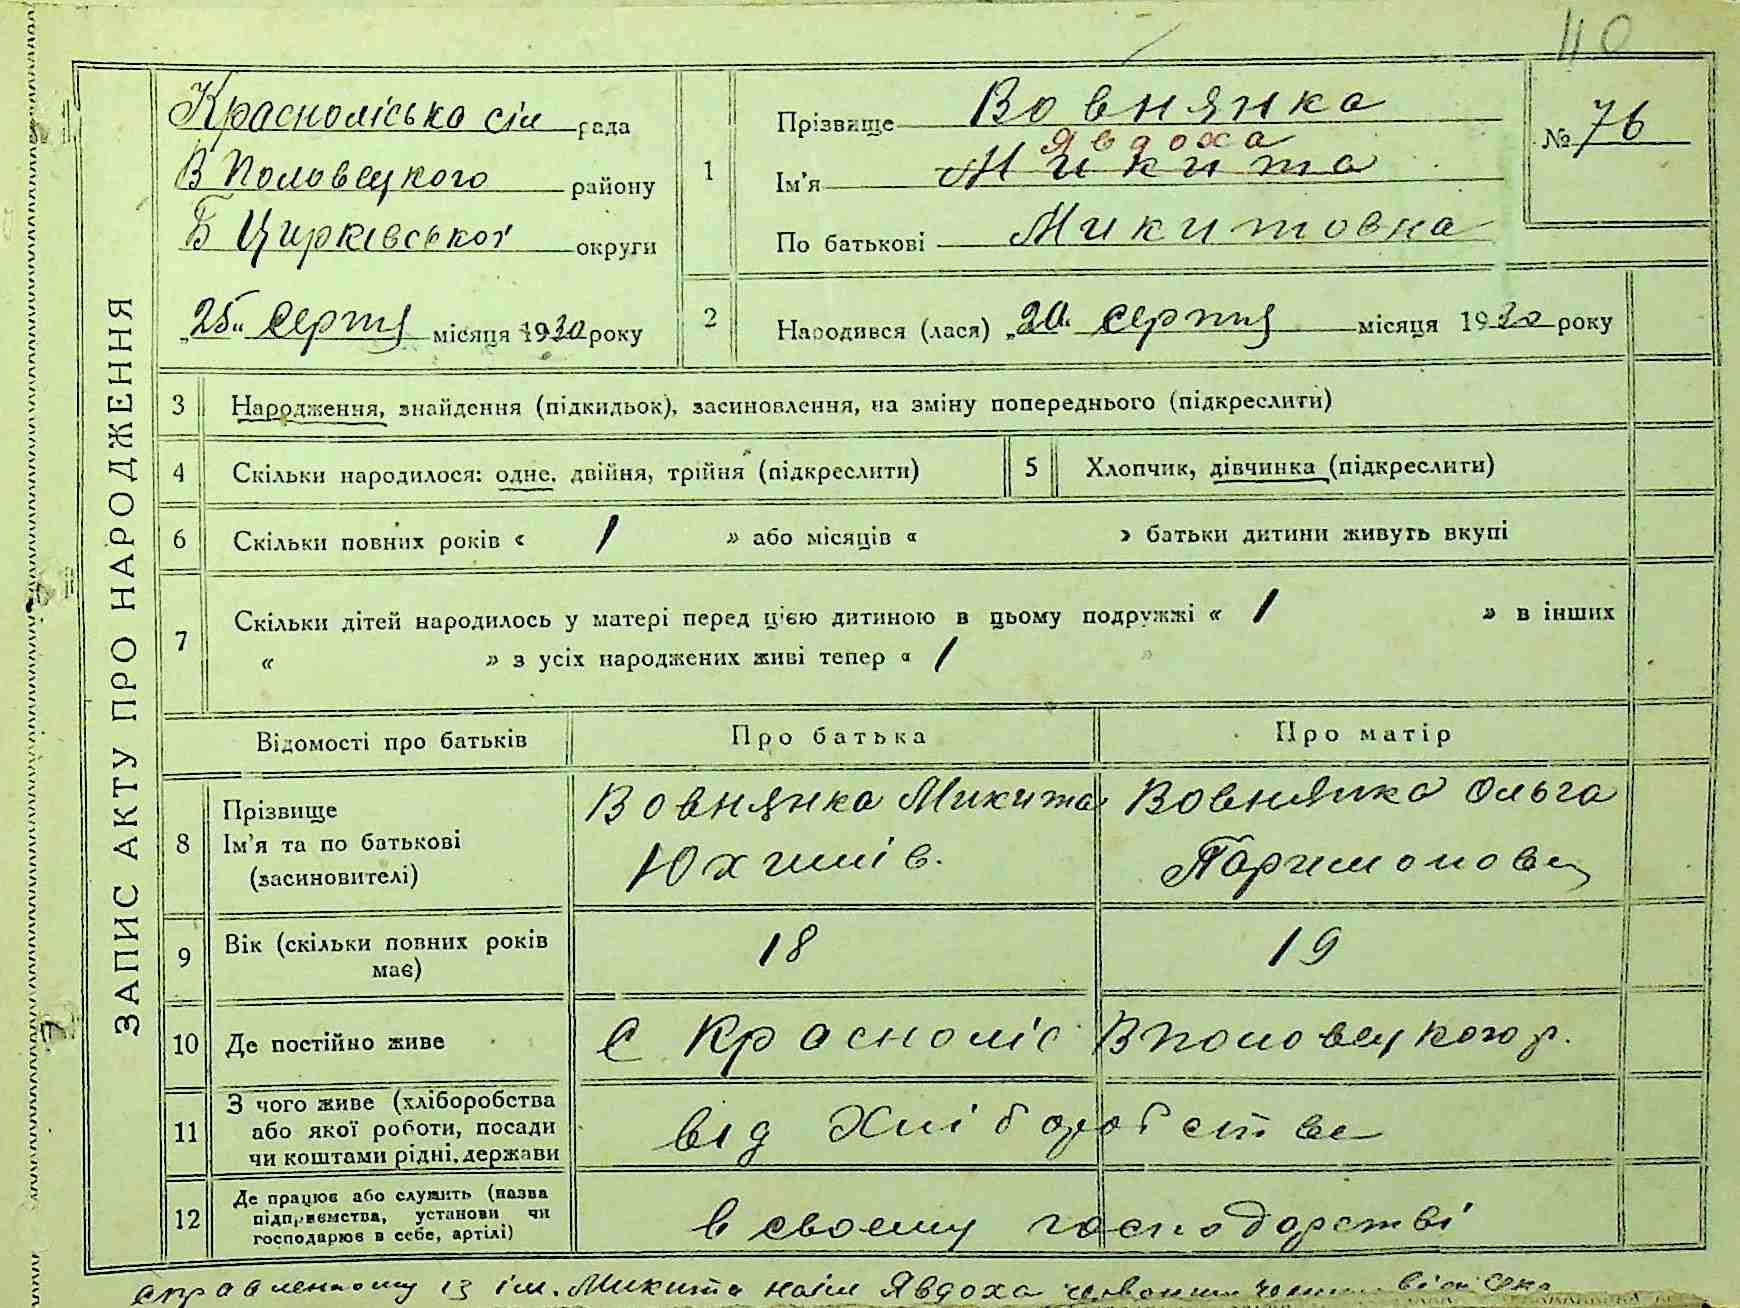 110
ЗАПИС АКТУ ПРО НАРОДЖЕННЯ
Красноліська сіл рада
ВПоловецкого району
Б Цирківської округи
„25" серпня місяця 1930 року
1
Прізвище Вовнянка
Явдоха
Ім'я Микита
По батькові Микитовна
№ 76
2 Народився (лася) „20" серпня місяця 1930 року
3 Народження, знайдення (підкидьок), засиновлення, на зміну попереднього (підкреслити)
4 Скільки народилося: одне, двійня, трійня (підкреслити)
5 Хлопчик, дівчинка (підкреслити)
6 Скільки повних років « 1 » або місяців « » батьки дитини живуть вкупі
7 Скільки дітей народилось у матері перед цією дитиною в цьому подружжі « 1 » в інших
« » з усіх народжених живі тепер « 1 »
Відомості про батьків Про батька Про матір
8 Прізвище
Ім'я та по батькові
(засиновителі)
Вовнянка Микита
Юхимів.
Вовнянка Ольга
Паримонова
9 Вік (скільки повних років
має)
18 19
10 Де постійно живе С Красноліс ВПоловецкого р.
11 З чого живе (хліборобства
або якої роботи, посади
чи коштами рідні, держави
від Хліборобства
12 Де працює або служить (назва
підприємства, установи чи
господарює в себе, артілі)
в своему господарстві
справленному із ім. Микита наім Явдоха